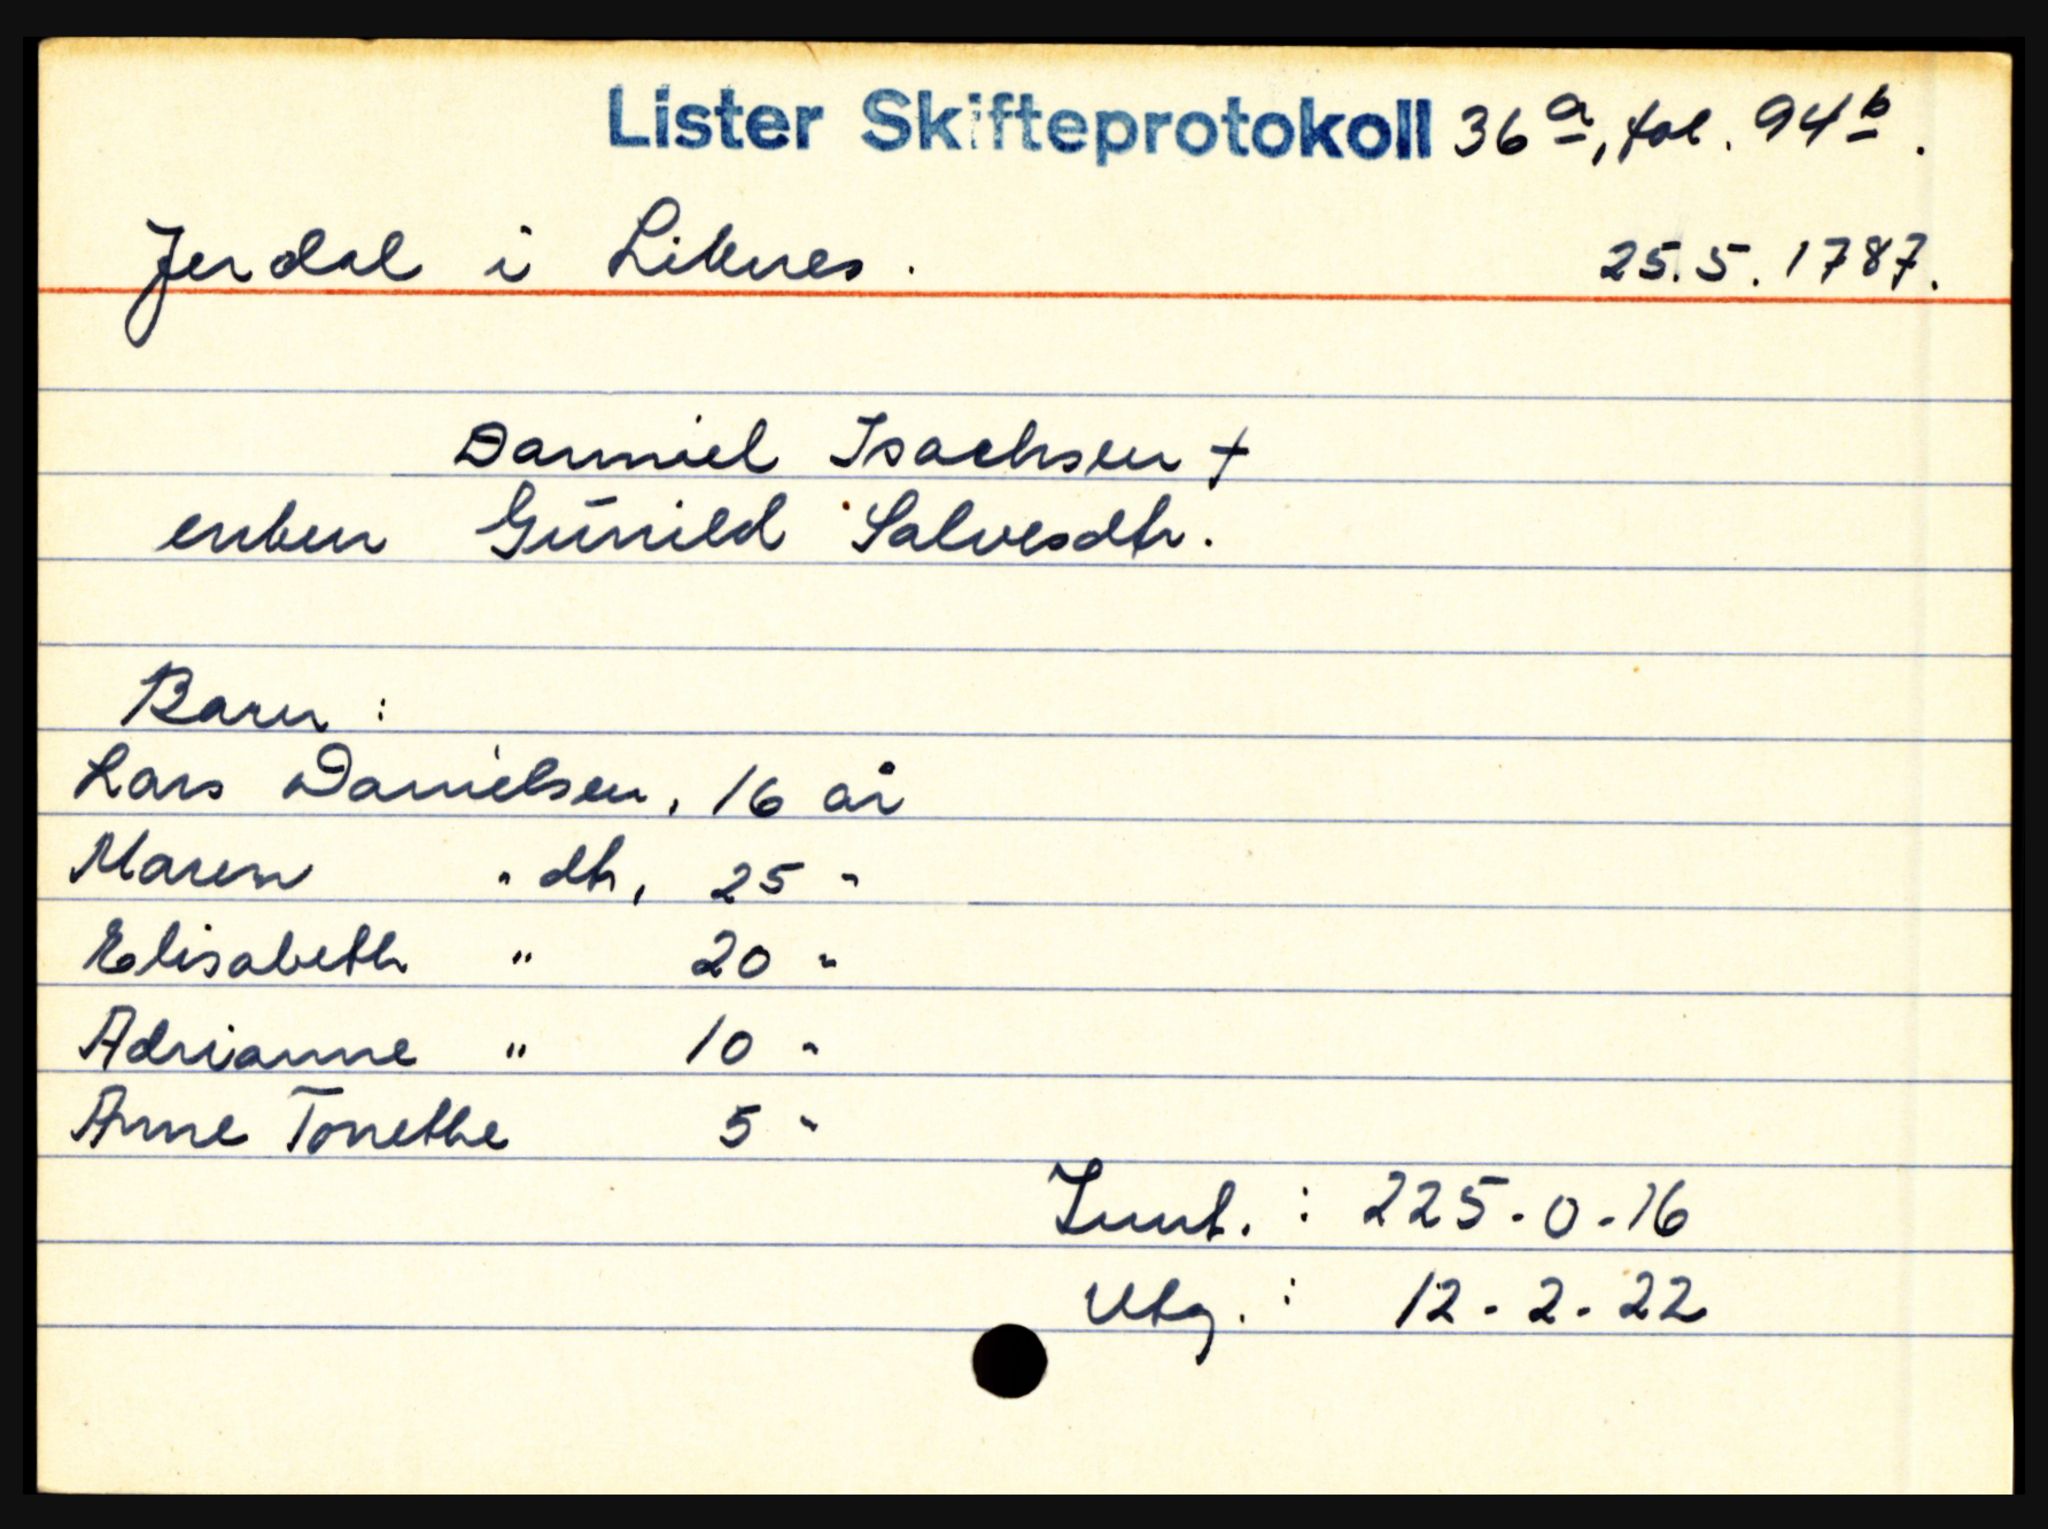 Lister Skifteprotokoll 36 a, fol. 94 b.
Jerdal i Liknes. 25.5.1787.
Danniel Isachsen +
enken Gunild Salvesdtr.
Barn :
Lars Danielsen, 16 år
Maren " dtr, 25 "
Elisabeth " 20 "
Adrianne " 10 "
Anne Tonethe 5 "
Innt. : 225-0-16
Utg. : 12-2-22